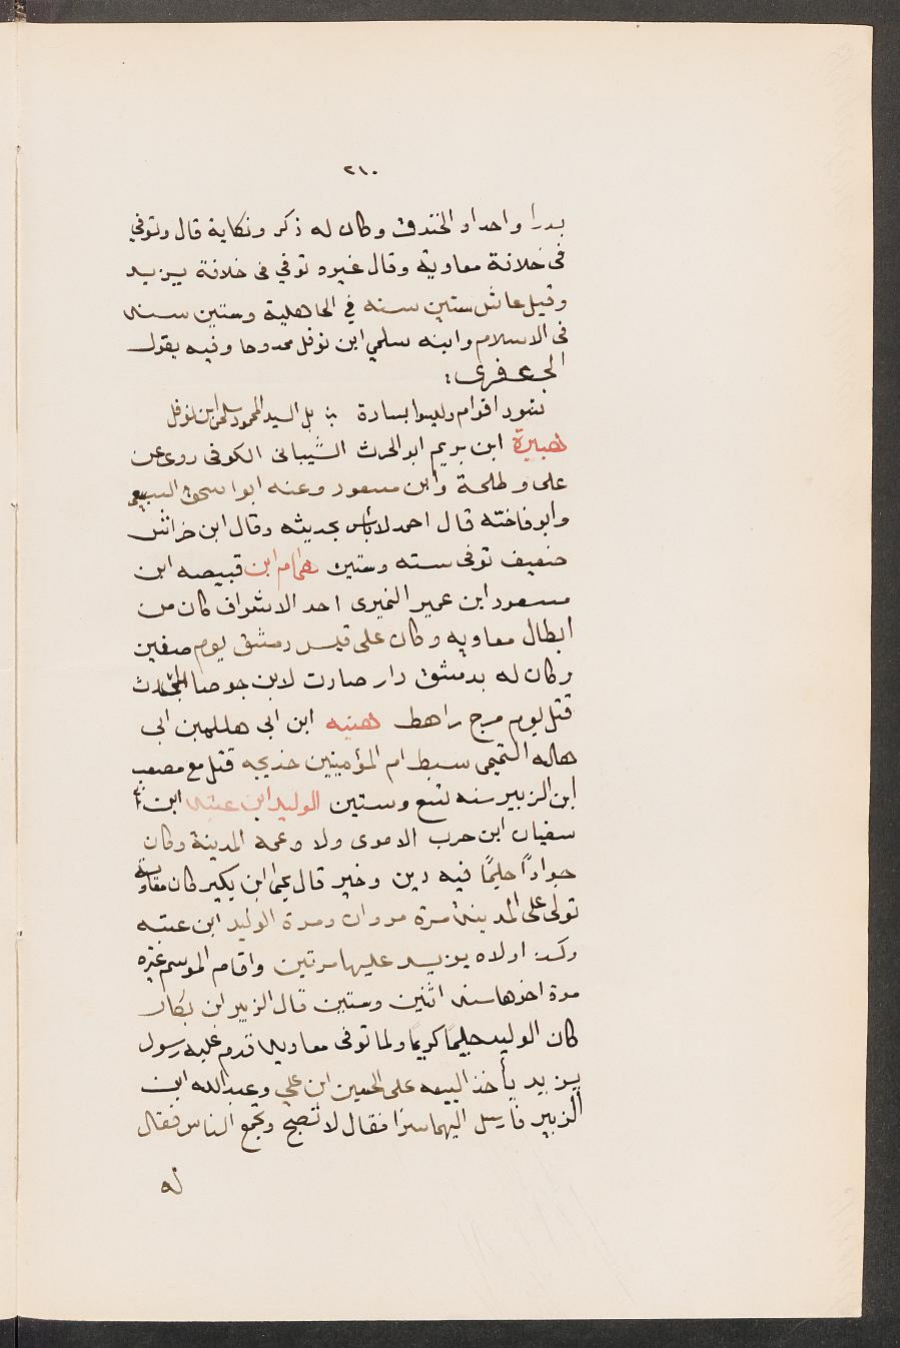 ٢١٠
بدرا واحدا والخندق وكان له ذكر ونكاية قال وتوفي
فى خلافة معاوية وقال غيره توفي فى خلافة يزيد
وقيل عاش ستين سنه في الجاهلية وستين سنه
فى الاسلام وابنه سلمي ابن نوفل ممدوحا وفيه يقول
الجعفرى:
اقوام وليسوا بسادة بل السيد المحمود سلمى ابن نوفل
هبيرة ابن بريم ابو الحرث الشيبانى الكوفى روى عن
على وطلحة وابن مسعود وعنه ابو اسحق السبيعى
وابو فاخته قال احمد لا باس بحديثه وقال ابن خراش
ضعيف توفى سنة وستين همام ابن قبيصه ابن
مسعود ابن عمير النميرى احد الاشراف كان من
ابطال معاويه وكان على قيس دمشق يوم صفين
وكان له بدمشق دار صارت لابن جوصا المحدث
قتل يوم مرج راهط هنيه ابن ابى هاله ابن ابى
هاله التميمى سبط ام المؤمينين خديجه قتل مع مصعب
ابن الزبير سنه تسع وستين الوليد ابن عتبه ابن
سفيان ابن حرب الاموى ولاه عمه المدينة وكان
جوادًا حليمًا فيه دين وخير قال يحيى ابن بكير كان معاوية
تولى على المدينة مرة مروان ومرة الوليد ابن عتبه
وكذا ولاه يزيد عليها مرتين واقام الموسم غيره
مرة اخرها سنه اثنين وستين قال الزبير ابن بكار
كان الوليد حليمًا كريمًا ولما توفى معاويه قدم عليه رسول
يزيد يأخذ البيعه على الحسين ابن علي وعبد الله ابن
الزبير فارسل اليهما سرًا فقال لا نصبح ويجمع الناس فقال
له